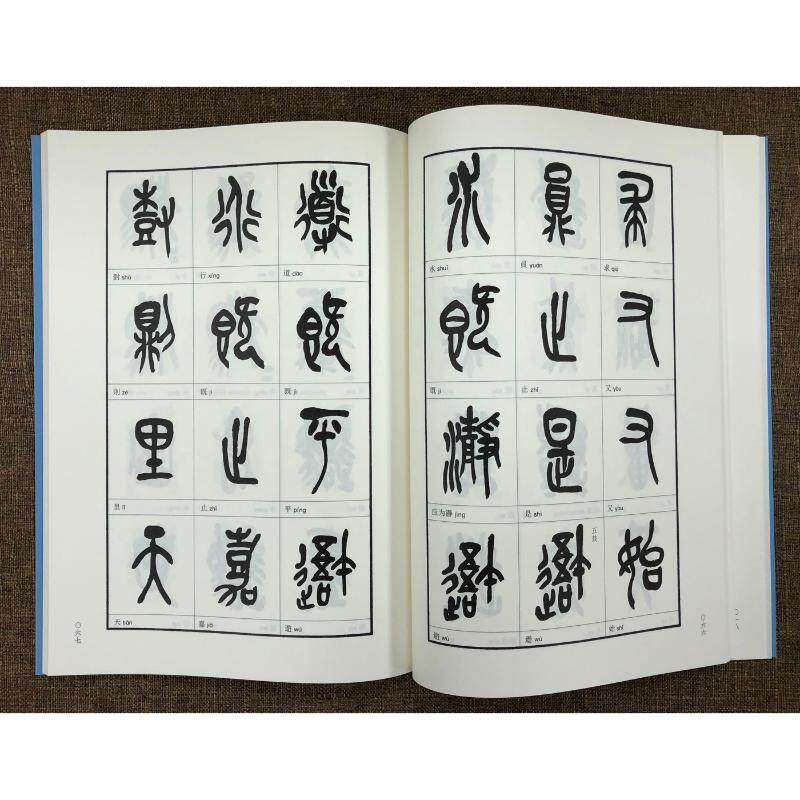 求 qiú
又 yòu
又 yòu
始 shǐ
員 yuán
止 zhǐ
是 shì
五鼓
wú
水 shuǐ
既 jì
应为瀞 jìng
wú
〇六六
道 dào
既 jì
平 píng
wú
行 xíng
既 jì
止 zhǐ
嘉 jiā
尌 shù
則 zé
里 lǐ
天 tiān
〇六七